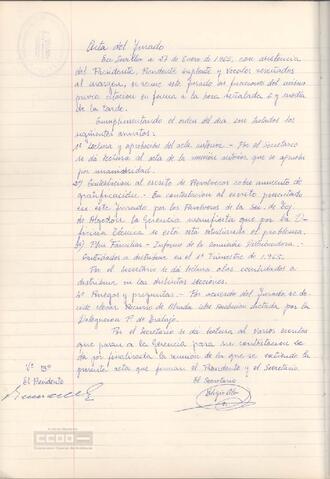 Acta del Jurado
En Sevilla a 27 de Enero de 1965, con asistencia
del Presidente, Presidente suplente y Vocales reseñados
al margen, se reune este jurado las funciones del mismo
previa citacion en forma a la hora señalada 6 y media
de la tarde.
Cumplimentando el orden del dia son tratados los
siguientes asuntos:
1º Lectura y aprobación del acta anterior. - Por el Secretario
se dá lectura al acta de la reunion anterior que se aprueba
por unanimidad.
2º) Contestacion al escrito de sobre aumento de
gratificación. - En contestacion al escrito presentado
en este Jurado por los de la Sec. de
de Algodon la Gerencia manifiesta que por la O-
ficina Técnica se está estudiando el problema.
3º) Plus Familiar - Informe de la Comisión Distribuidora. -
Cantidades a distribuir en el 1º Trimestre de 1.965.
Por el Secretario se dá lectura a las cantidades a
distribuir en las distintas secciones.
4º Ruegos y preguntas. - Por acuerdo del Jurado se de-
cide elevar Recurso de Alzada sobre Resolucion dictada por
la Delegacion P. de Trabajo.
Por el Secretario se da lectura al varios escritos
que pasan a la Gerencia para su contestacion se
da por finalizada la reunion de la que se extiende la
presente acta que firman el Presidente y el Secretario
Vº Bº
El Presidente
El Secretario
CCOO